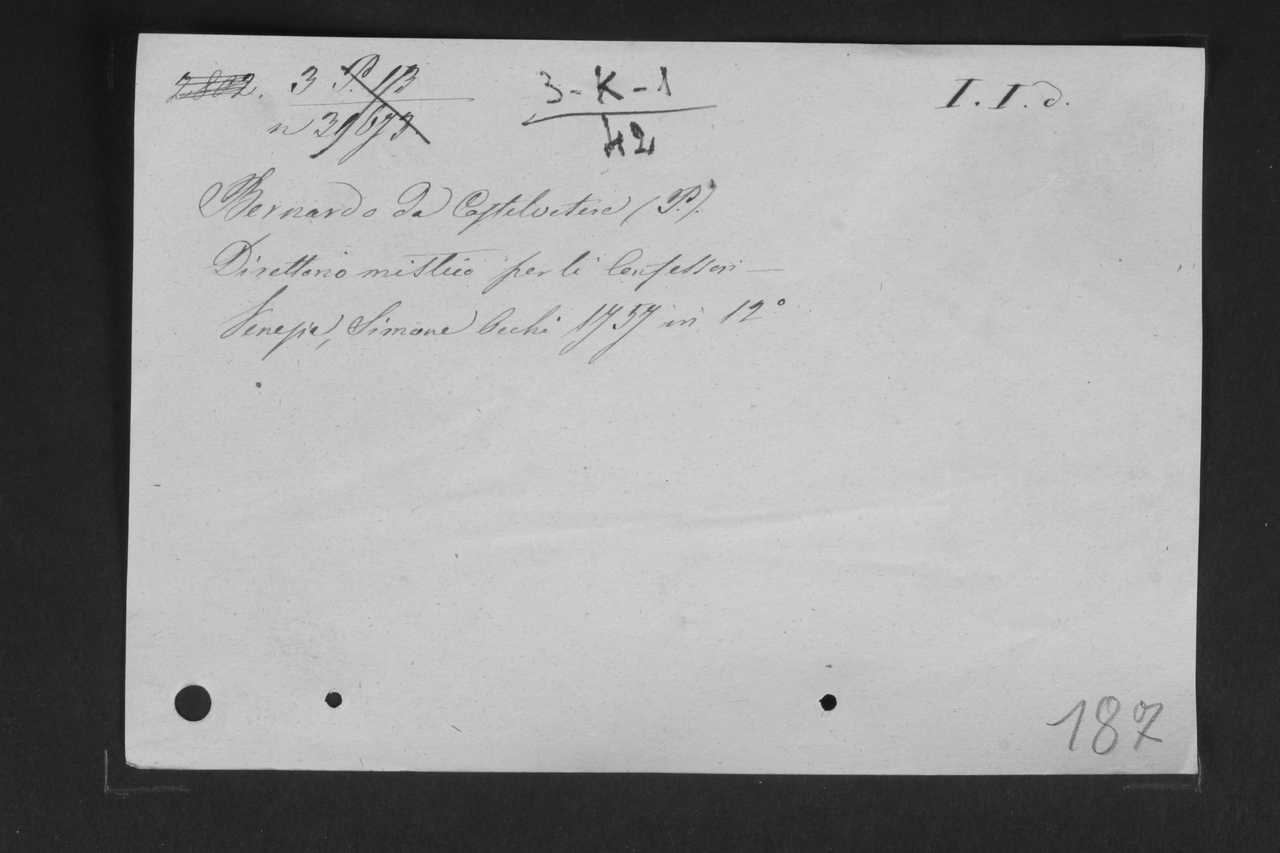 2802. 3 P. 13 3-K-1 I. I. d.
n 39673 42
Bernardo da Castelvetere (P.).
Direttorio mistico per li Confessori —
Venezia, Simone Occhi 1757 in 12°
187